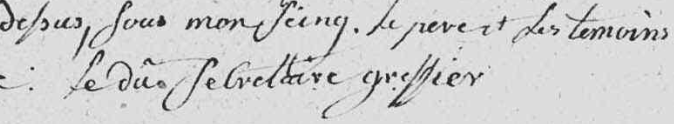 dessus, sous mon seing. le pere et les temoins
: le dit Secrettaire greffier